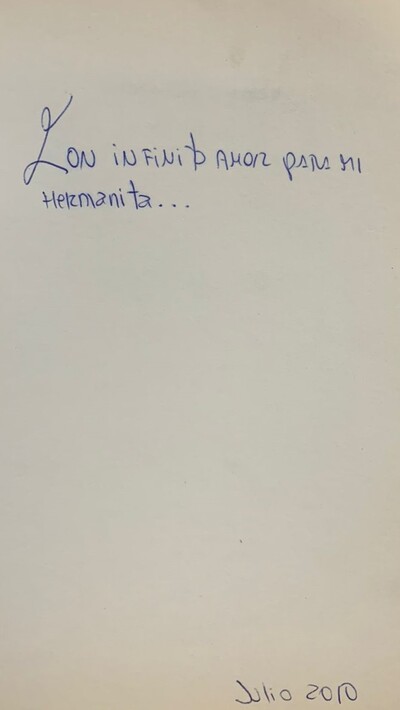 Con infinito amor para mi
Hermanita...
Julio 2010